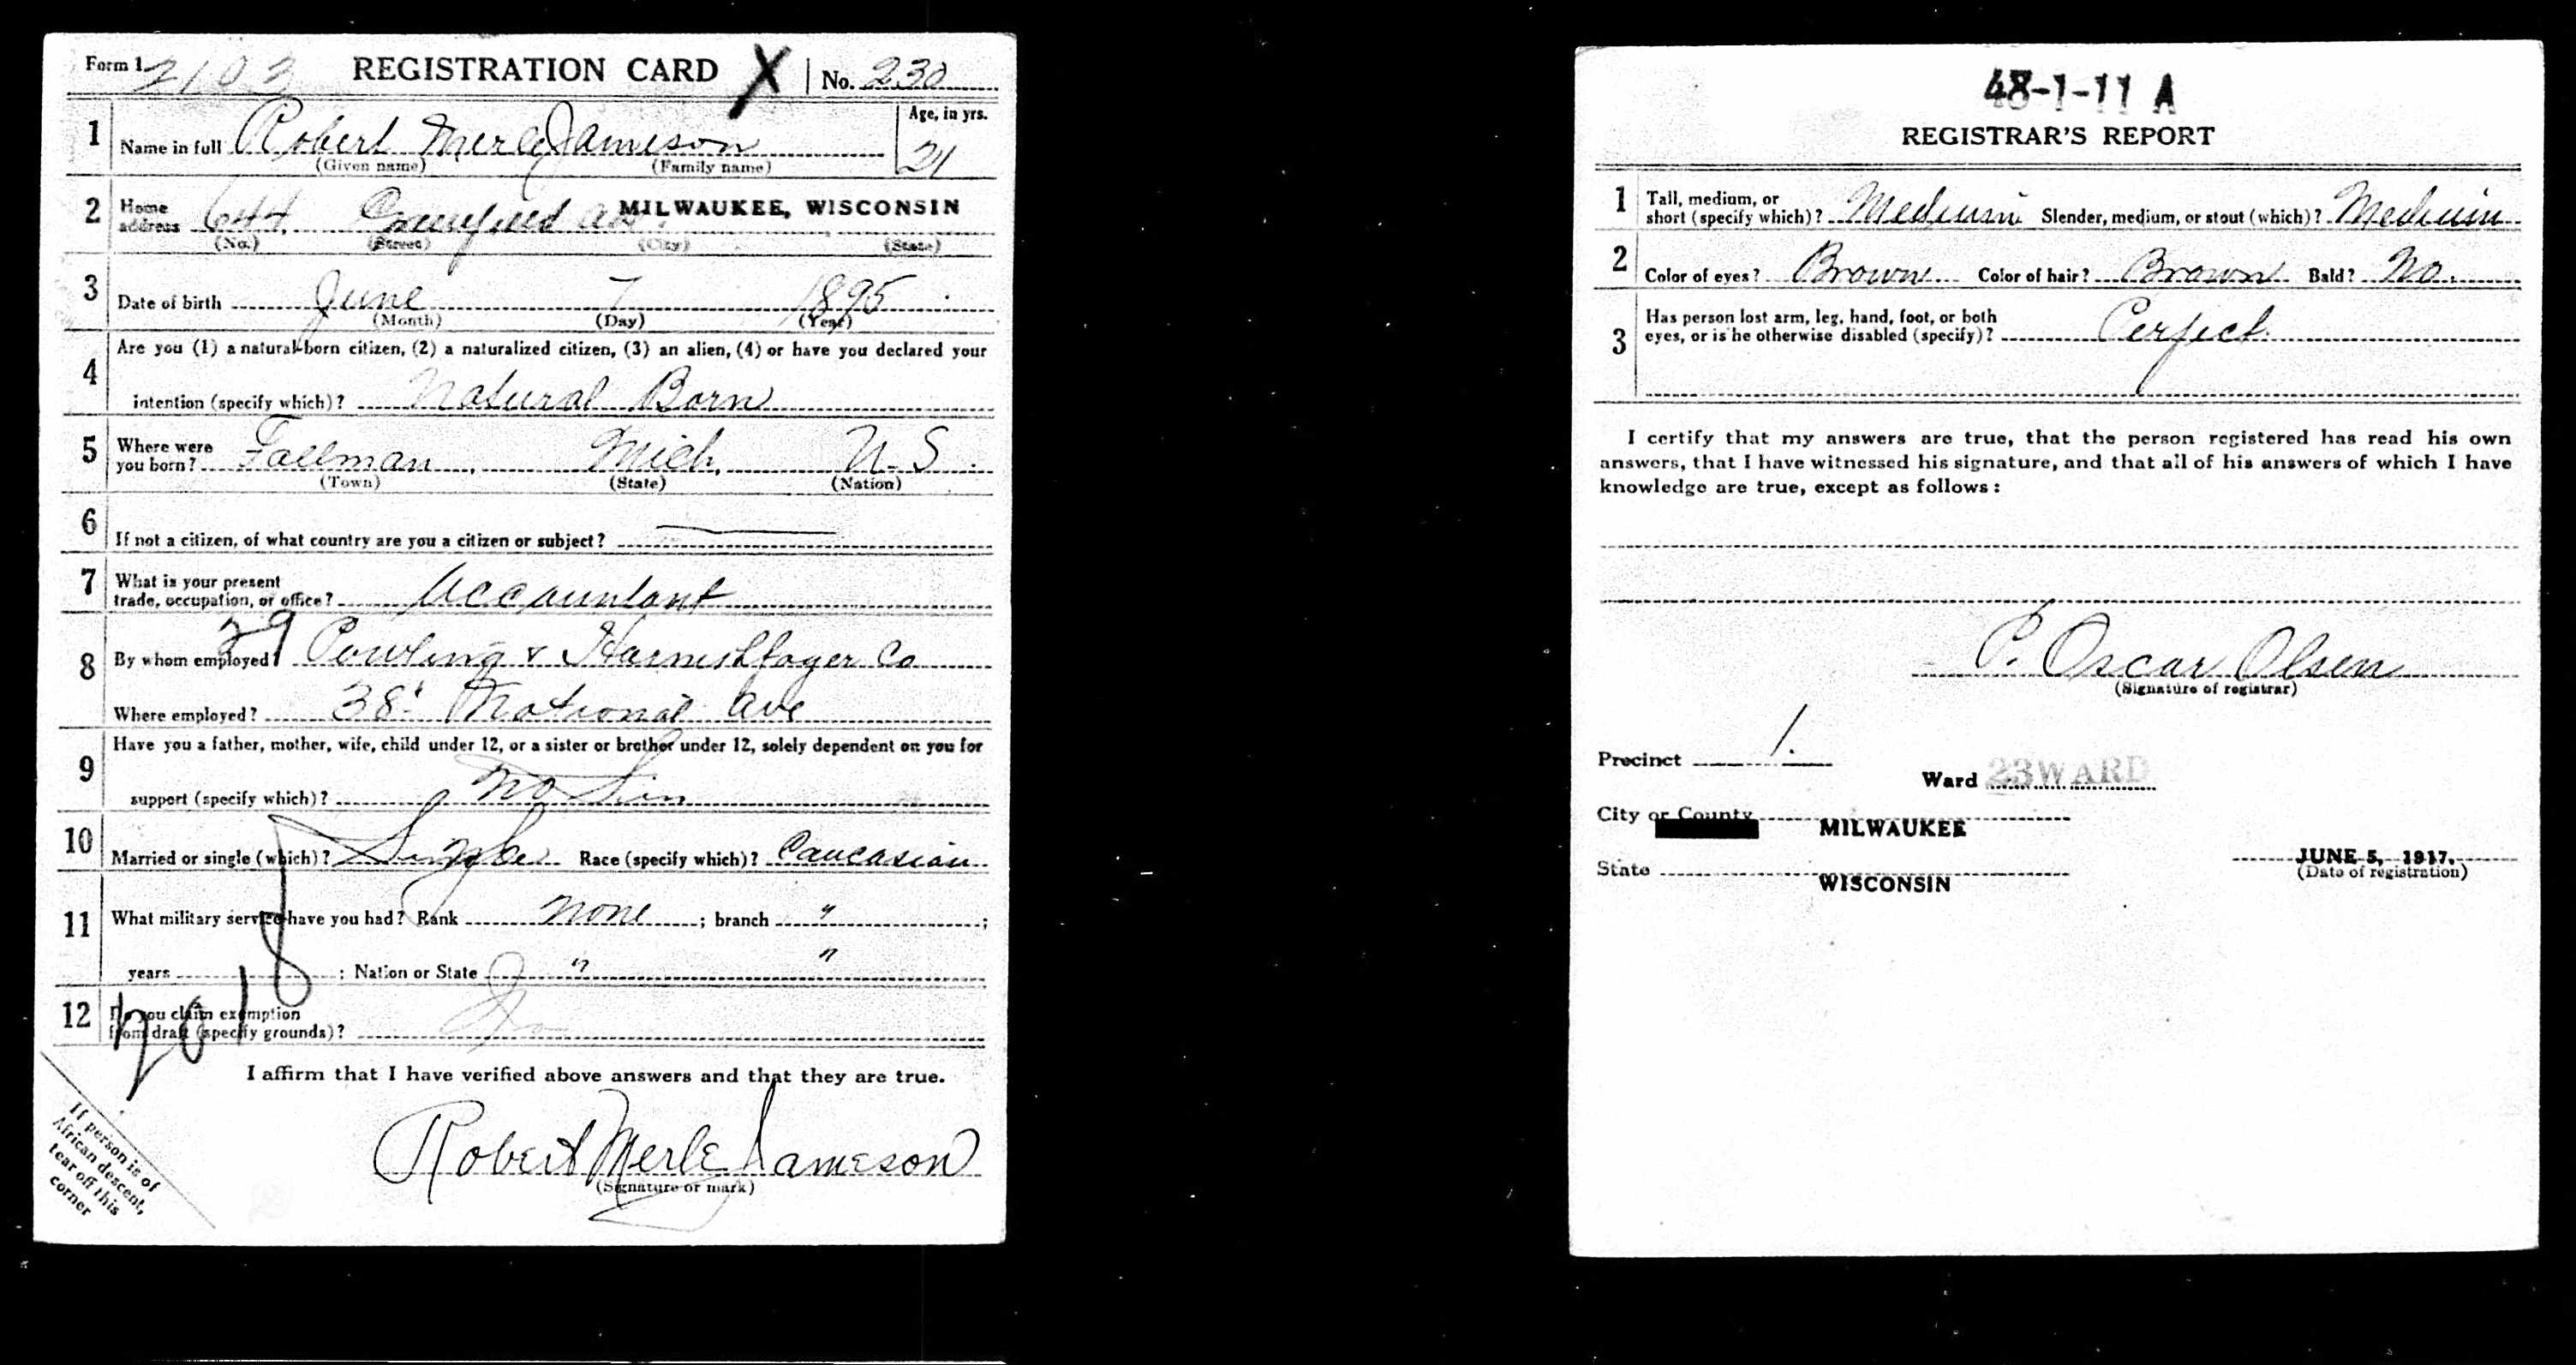 Form 1 2103 REGISTRATION CARD X No. 230
1 Name in full Robert Merle Jameson Age, in yrs. 21
(Given name) (Family name)
2 Home address 644 ave. MILWAUKEE, WISCONSIN
(No.) (Street) (City) (State)
3 Date of birth June 7 1895
(Month) (Day) (Year)
4 Are you (1) a natural-born citizen, (2) a naturalized citizen, (3) an alien, (4) or have you declared your
intention (specify which)? Natural Born
5 Where were you born? Tallman, Mich, U.S.
(Town) (State) (Nation)
6 If not a citizen, of what country are you a citizen or subject? —
7 What is your present trade, occupation, or office? Accountant
29
8 By whom employed? Pawling & Harnishfager Co
Where employed? 38' National Ave
9 Have you a father, mother, wife, child under 12, or a sister or brother under 12, solely dependent on you for
support (specify which)? No
10 Married or single (which)? Single Race (specify which)? Caucasian
11 What military service have you had? Rank None ; branch " ;
years ; Nation or State " "
12 Do you claim exemption from draft (specify grounds)? No
I affirm that I have verified above answers and that they are true.
Robert Merle Jameson
(Signature or mark)
If person is of
African descent,
tear off this
corner
48-1-11 A
REGISTRAR'S REPORT
1 Tall, medium, or short (specify which)? Medium Slender, medium, or stout (which)? Medium
2 Color of eyes? Brown Color of hair? Brown Bald? No.
3 Has person lost arm, leg, hand, foot, or both
eyes, or is he otherwise disabled (specify)? Perfect.
I certify that my answers are true, that the person registered has read his own
answers, that I have witnessed his signature, and that all of his answers of which I have
knowledge are true, except as follows:
P. Oscar Olsen
(Signature of registrar)
Precinct 1.
Ward 23 WARD
City or County MILWAUKEE
State WISCONSIN
JUNE 5, 1917.
(Date of registration)